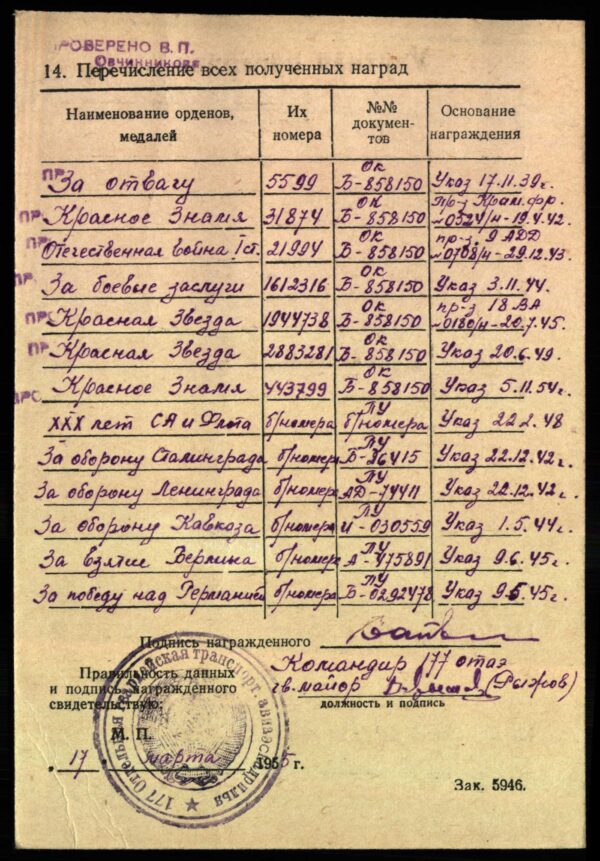 ПРОВЕРЕНО В. П.
Овчинникова
14. Перечисление всех полученных наград
Наименование орденов, медалей | Их номера | №№ документов | Основание награждения
ПР За отвагу | 5599 | ОК Б-858150 | Указ 17.11.39г.
ПР Красное Знамя | 31874 | ОК Б-858150 | пр-з Крам.фр. №0524/н-19.4.42.
ПР Отечественная война I ст. | 21994 | ОК Б-858150 | пр-з. 9 АДД №0708/н-29.12.43.
ПР За боевые заслуги | 1612316 | ОК Б-858150 | Указ 3.11.44.
ПРО Красная Звезда | 1944738 | ОК Б-858150 | пр-з 18 ВА №0180/н-20.7.45.
ПР Красная Звезда | 2883281 | ОК Б-858150 | Указ 20.6.49.
ПРО Красное Знамя | 443799 | ОК Б-858150 | Указ 5.11.54г.
XXX лет СА и Флота | б/номера | ПУ б/номера | Указ 22.2.48
За оборону Сталинграда | б/номера | ПУ Б-36415 | Указ 22.12.42г.
За оборону Ленинграда | б/номера | ПУ АД-74411 | Указ 22.12.42г.
За оборону Кавказа | б/номера | ПУ И-030559 | Указ 1.5.44г.
За взятие Берлина | б/номера | ПУ А-475891 | Указ 9.6.45г.
За победу над Германией | б/номера | ПУ Б-0292478 | Указ 9.5.45г.
Подпись награжденного
Правильность данных
и подпись награжденного
свидетельствую:
Командир 177 отаэ
гв. майор (Рыжров)
должность и подпись
М. П.
177 Отдельная гвардейская транспорт. авиаэскадрилья
„17" марта 1955 г.
Зак. 5946.